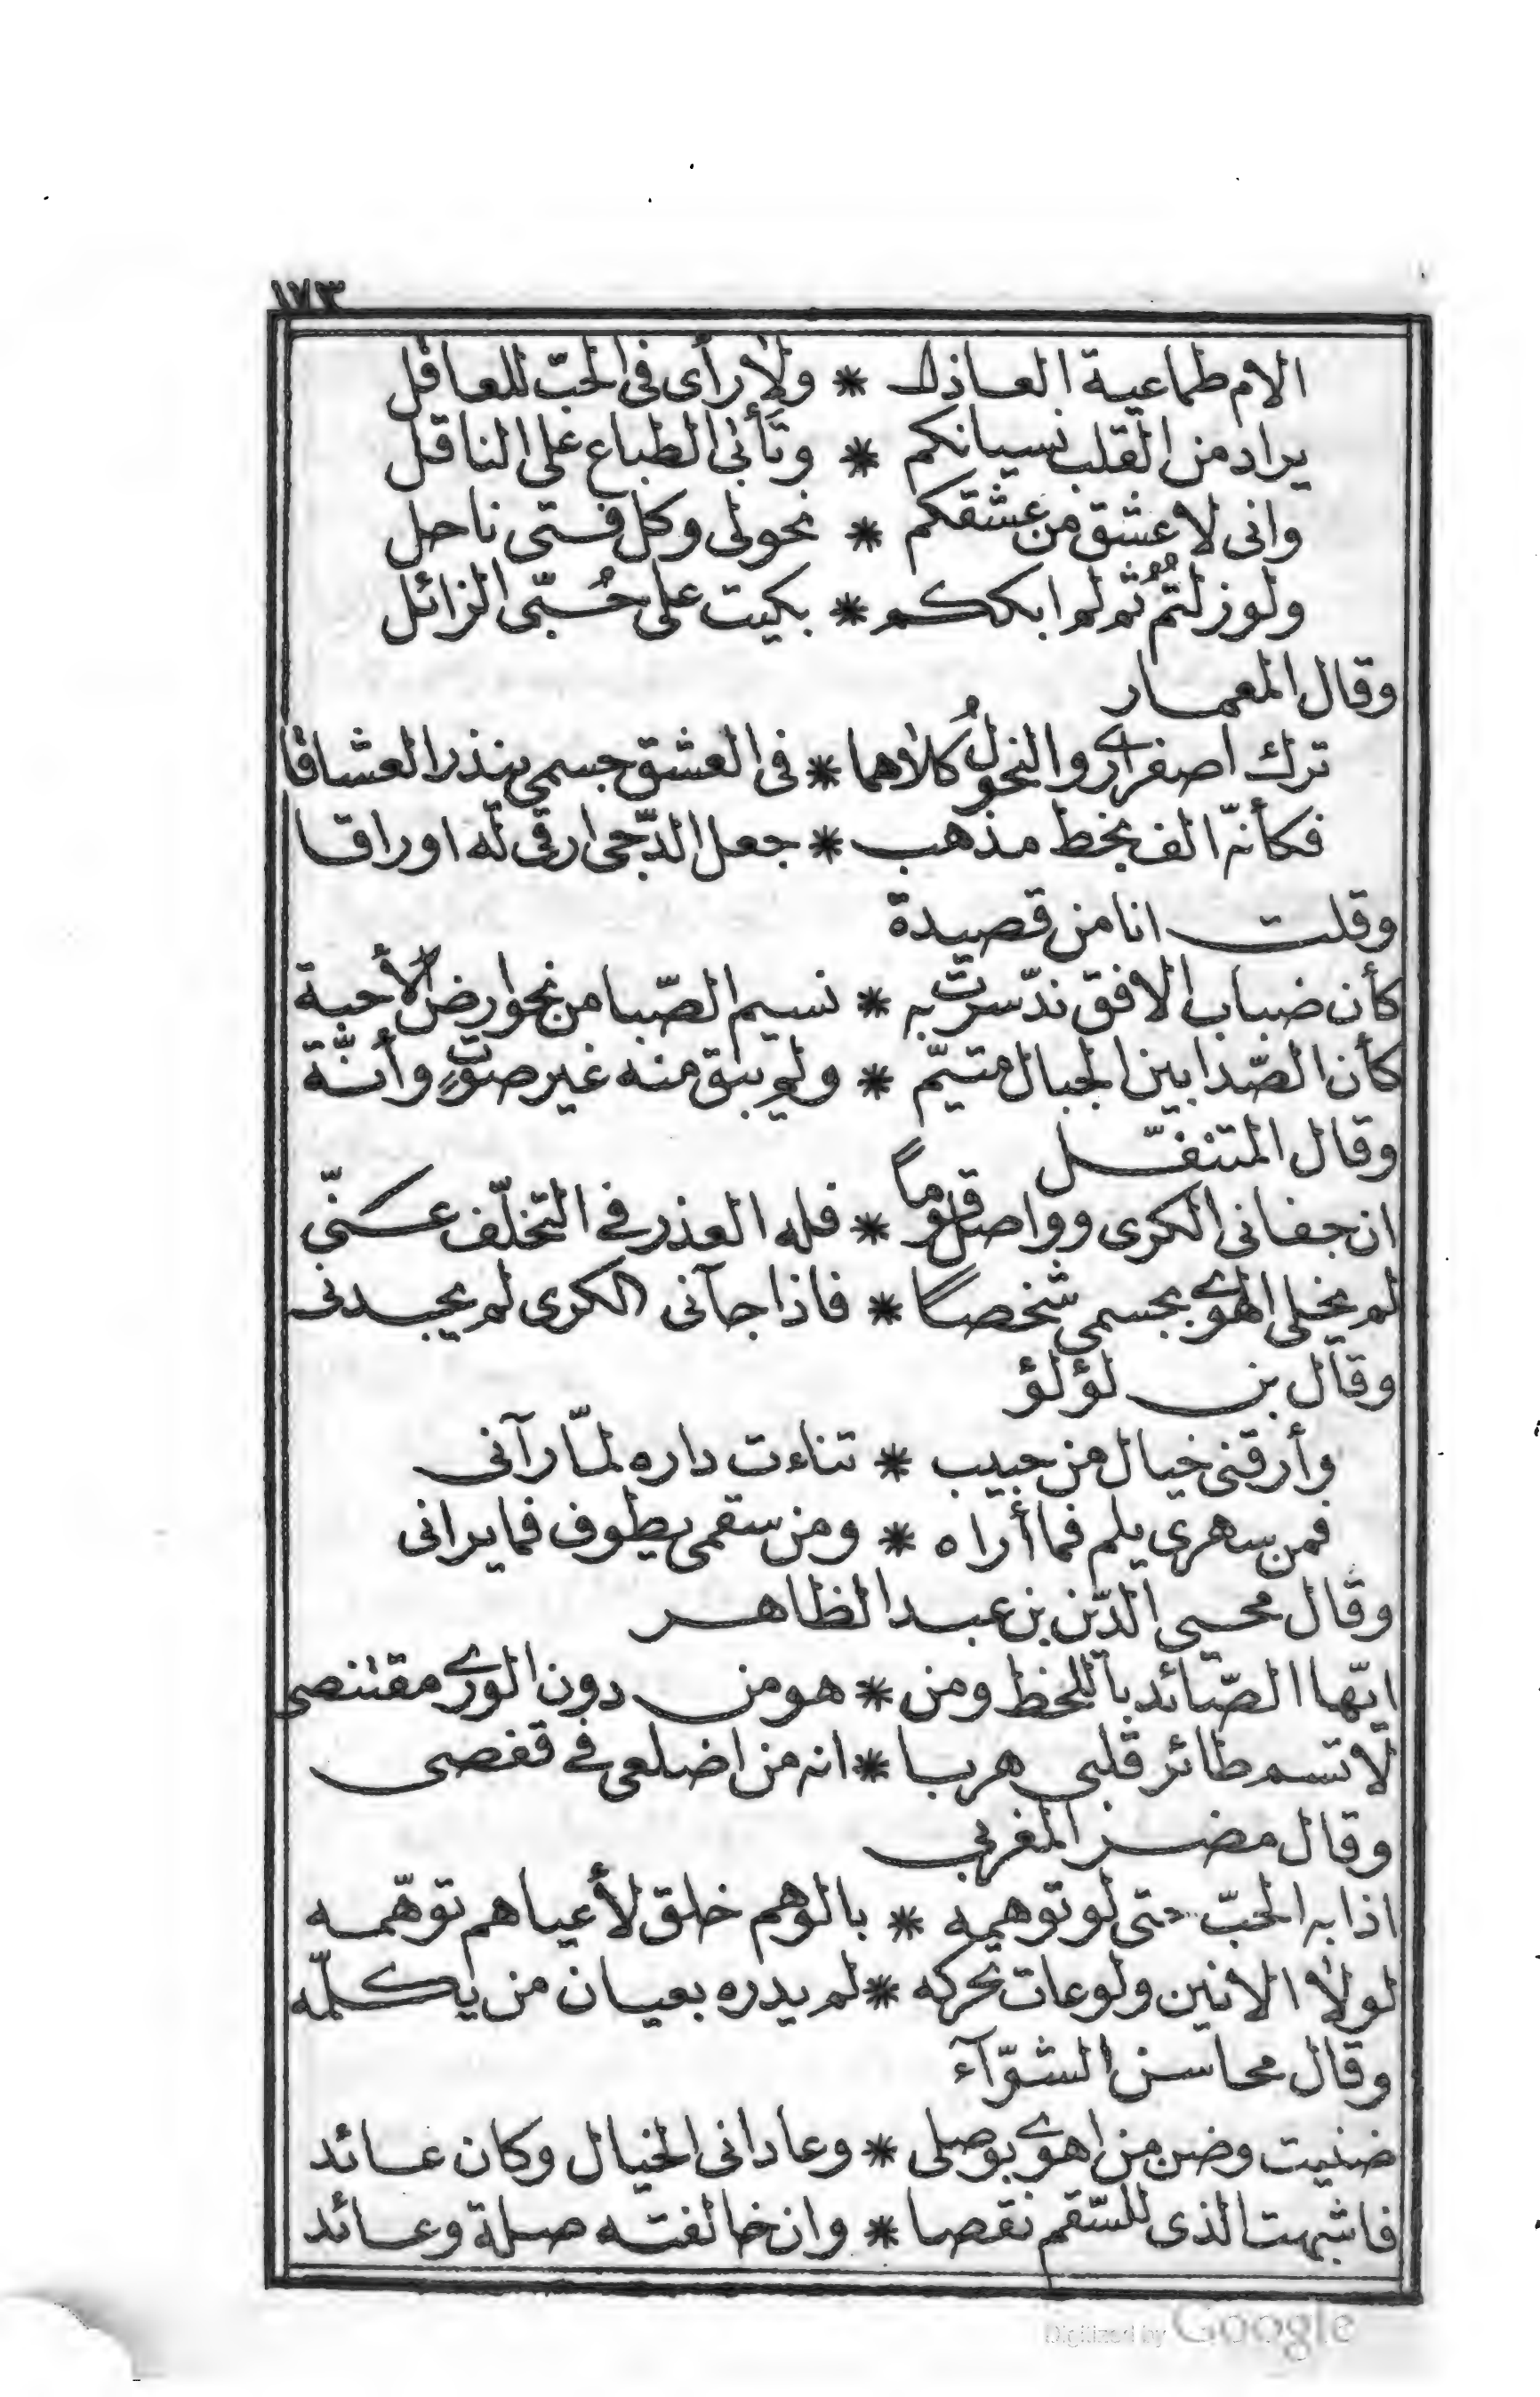 ١٧٣
الام طماعية العاذل * ولا رأى فى الحبّ للعاقل
يراد من القلب نسيانكم * وتأبى الطباع على الناقل
وانى لاعشق من عشقكم * نحولى وكل فتى ناحل
ولو زلتم ثم لم ابككم * بكيت على حُبّى الزائل
وقال المعمار
ترك اصفرارے والنحول كلاهما * فى العشق جسمى ينذر العشاقا
فكأنّه الف بخط مذهب * جعل الدّجى ارقى له اوراقا
وقلت انا من قصيدة
كأن ضباب الافق ندّ سرت به * نسيم الصّبا من نحو ارض الأحبة
كأن الصّدا بين الجبال متيّم * ولم يبق منه غير صوتٍ وأنّة
وقال المتنفّل
ان جفانى الكرى وواصل قوماً * فله العذر فے التخلّف عنّى
لم يخلى الهوے بجسمى شخصاً * فاذا جآنى الكرى لم يجدنى
وقال بن لؤلؤ
وأرقنى خيال من حبيب * تناءت داره لمّا رآنى
فمن سهرى يلم فما أراه * ومن سقمى يطوف فما يرانى
وقال محيى الدّين بن عبد الظاهر
ايّها الصّائد باللحظ ومن * هو من دون الورے مقتنصى
لا تسم طائر قلبى هربا * انه من اضلعى فے قفصى
وقال مضر المغربى
اذابه الحبّ حتى لو توهمه * بالوهم خلق لأعياهم توهّمه
لولا الانين ولوعات تحركه * لم يدره بعيان من يكلّمه
وقال محاسن الشوّآء
ضنيت وضن من اهوے بوصلى * وعادانى الخيال وكان عائد
فاشبهت الذى للسّقم نقصا * وان خالفته صلة وعائد
Digitized by Google